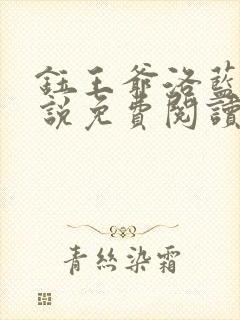 鈺王爺洛藍
說免費閱讀
青絲染霜